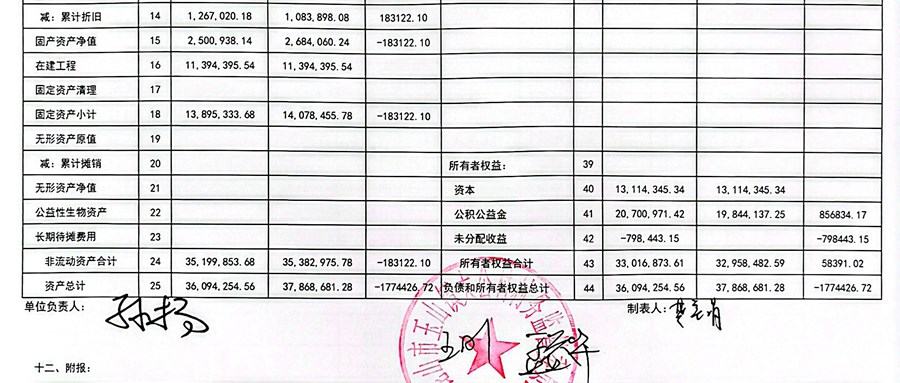 减：累计折旧 14 1,267,020.18 1,083,898.08 183122.10
固产资产净值 15 2,500,938.14 2,684,060.24 -183122.10
在建工程 16 11,394,395.54 11,394,395.54
固定资产清理 17
固定资产小计 18 13,895,333.68 14,078,455.78 -183122.10
无形资产原值 19
减：累计摊销 20 所有者权益： 39
无形资产净值 21 资本 40 13,114,345.34 13,114,345.34
公益性生物资产 22 公积公益金 41 20,700,971.42 19,844,137.25 856834.17
长期待摊费用 23 未分配收益 42 -798,443.15 -798443.15
非流动资产合计 24 35,199,853.68 35,382,975.78 -183122.10 所有者权益合计 43 33,016,873.61 32,958,482.59 58391.02
资产总计 25 36,094,254.56 37,868,681.28 -1774426.72 负债和所有者权益总计 44 36,094,254.56 37,868,681.28 -1774426.72
单位负责人： 制表人：
十二、附报：